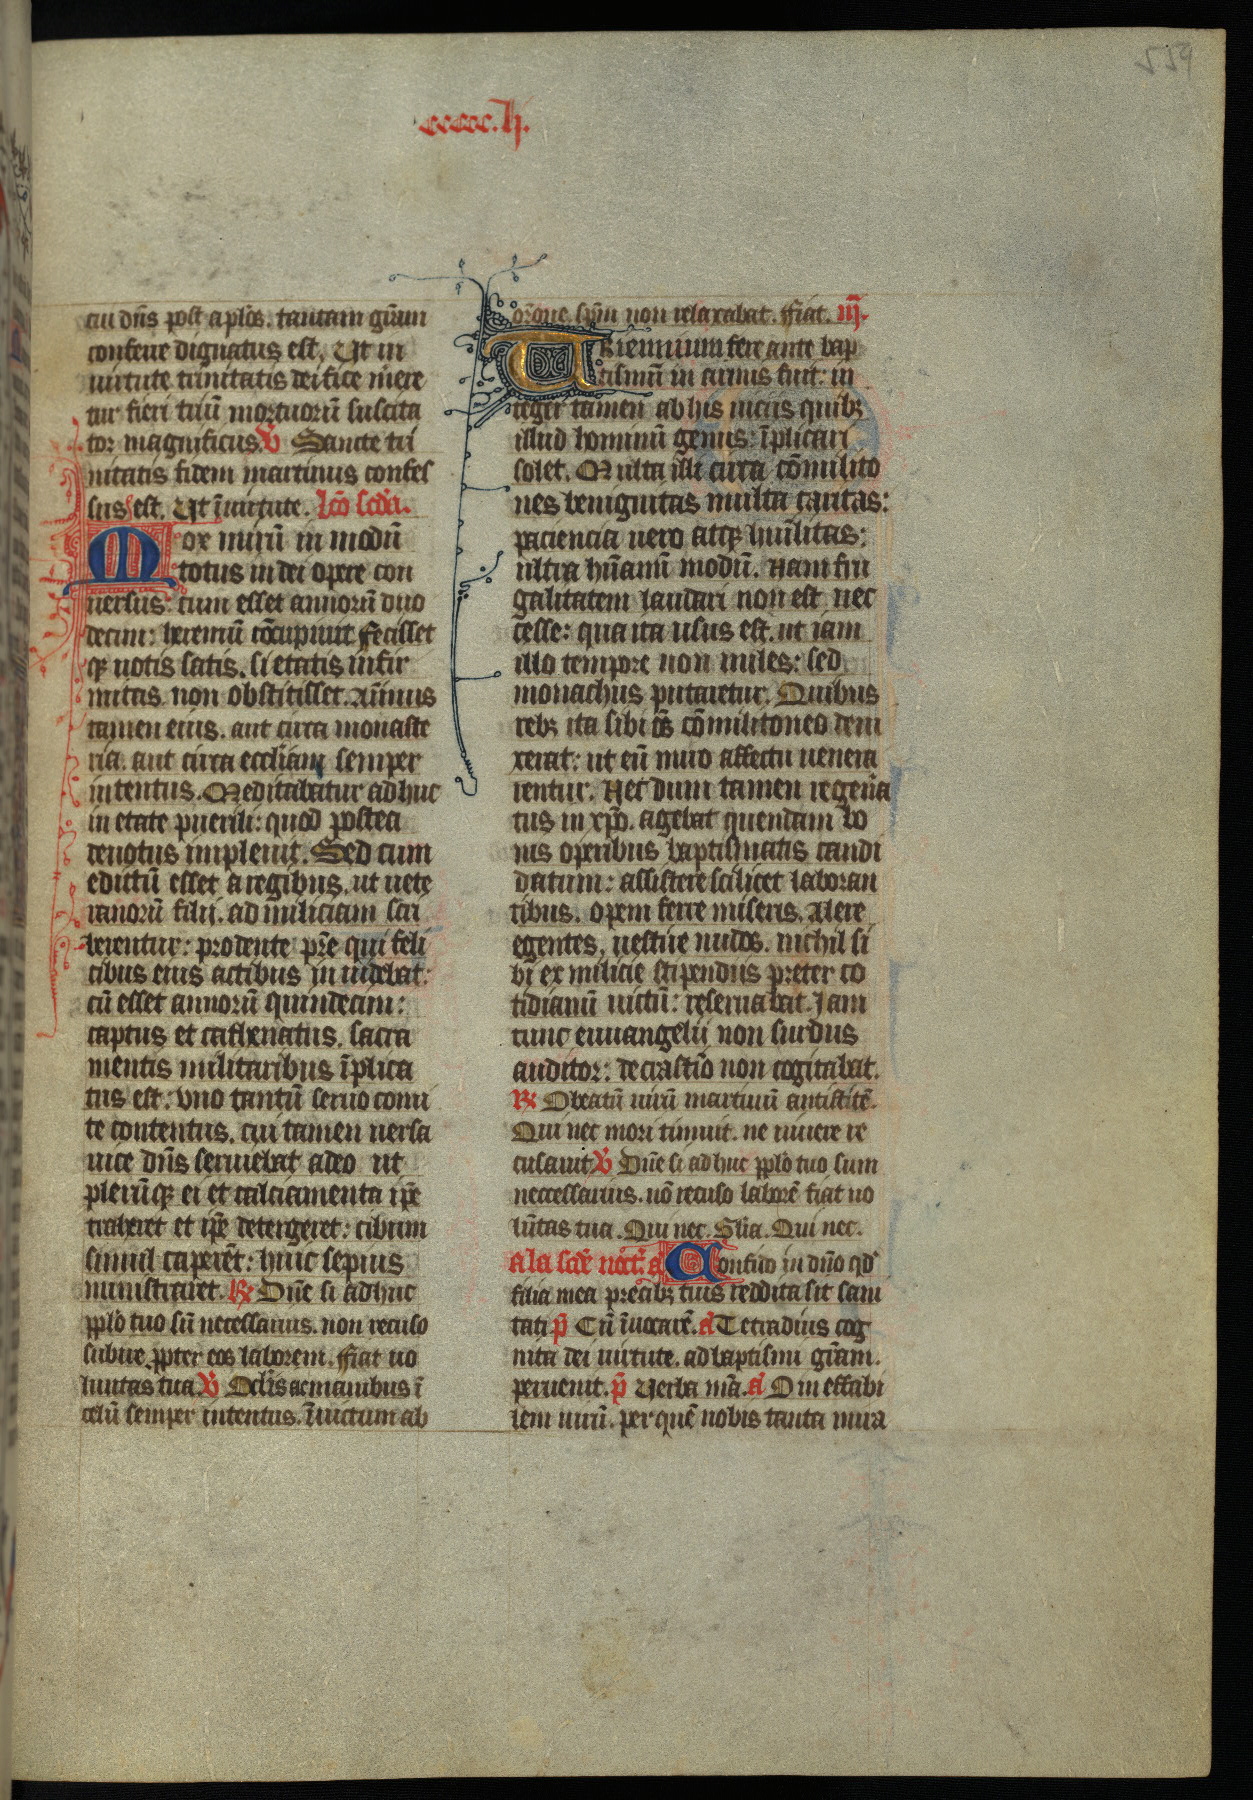 ccccc.lı.
cui dn̄s post ap̄los. tantam gr̄am
conferre dignatus est. Ut in
uirtute trinitatis deifice mere
tur fieri triū mortuorū suscita
tor magnificus. V̄ Sancte tri
nitatis fidem martinus confes
sus est. Ut ī uirtute. lc̄o scd̄a.
Mox mirū in modū
totus in dei opere con
uersus: cum esset annorū duo
decim: heremū cōcupiuit fecisset
qꝫ uotis satis. si etatis infir
mitas non obstitisset. Anīmus
tamen eius. aut circa monaste
ria. aut circa eccl̄iam semper
intentus. Meditabatur adhuc
in etate puerili: quod postea
deuotus impleuit. Sed cum
edictū esset a regibus. ut uete
ranorū filij. ad miliciam scri
berentur: prodente pr̄e qui feli
cibus eius actibus inuidebat:
cū esset annorū quindecim:
captus et cathenatus. sacra
mentis militaribus īplica
tus est: vno tantū seruo comi
te contentus. cui tamen uersa
uice dn̄s seruiebat adeo ut
plerūqꝫ ei et calciamenta ip̄e
traheret et ip̄e detergeret: cibum
simul caperēt: huic sepius
ministraret. R̄ Dn̄e si adhuc
pp̄lo tuo sū necessarius. non recuso
subire ꝓpter eos laborem. fiat uo
luntas tua V̄ Oclīs ac manibus ī
celū semper intentus. īuictum ab
or̄one. sp̄m non relaxabat. fiat. iij̄.
Triennium fere ante bap
tismū in armis fuit: in
teger tamen ab his uiciis quibꝫ
illud hominū genus: īplicari
solet. Multa illi circa cōmilito
nes benignitas multa caritas:
paciencia uero atqꝫ humīlitas:
ultra hūanū modū. Nam fru
galitatem laudari non est nec
cesse: qua ita usus est. ut iam
illo tempore non miles: sed
monachus putaretur. Quibus
rebꝫ ita sibi oēs cōmilitones deui
xerat: ut eū miro affectu uenera
rentur. Necdum tamen regen̄a
tus in xp̄o. agebat quendam bo
nis operibus baptismatis candi
datum: assistere scilicet laboran
tibus. opem ferre miseris. Alere
egentes. uestire nudos. nichil si
bi ex milicie stipendiis preter co
tidianū uictū: reseruabat. Jam
tunc euuangelij non surdus
auditor: de crastīo non cogitabat.
R̄ O beatū uirū martinū antistitē.
Qui nec mori timuit. ne uiuere re
cusauit V̄ Dn̄e si adhuc pp̄lo tuo sum
neccessarius. nō recuso laborē fiat uo
lūtas tua. Qui nec. Gl̄ia. Qui nec.
A la scd̄e noct̄. a᷉ Confido in dn̄o qd̄
filia mea precibꝫ tuis reddita sit sani
tati p̄ Cū īuocarē. a᷉ Tetradius cog
nita dei uirtute. ad baptismi gr̄am.
peruenit. p̄ Uerba mēa. a᷉ O ineffabi
lem uirū. per quē nobis tanta mira